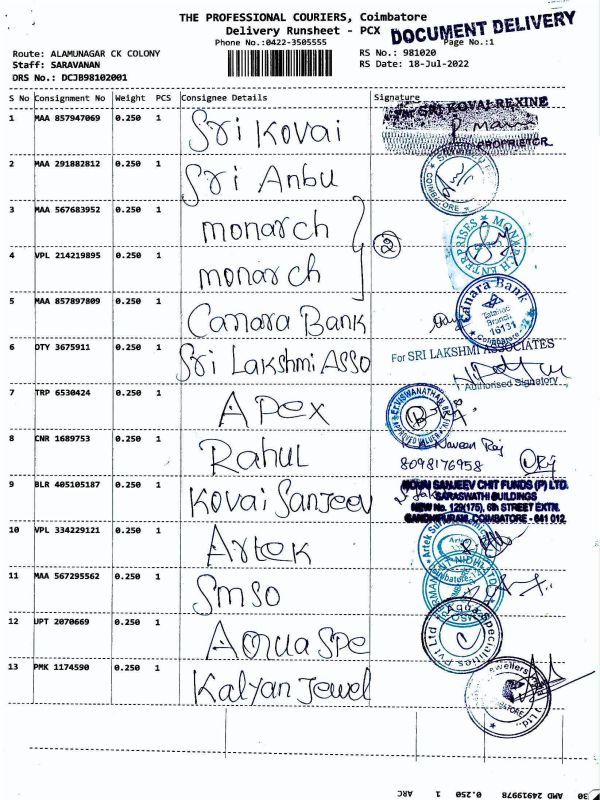 THE PROFESSIONAL COURIERS, Coimbatore
Delivery Runsheet - PCX
DOCUMENT DELIVERY
Phone No.:0422-3505555
Page No.:1
Route: ALAMUNAGAR CK COLONY
RS No.: 981020
Staff: SARAVANAN
RS Date: 18-Jul-2022
DRS No.: DCJB98102001
S No Consignment No Weight PCS Consignee Details Signature
SRI KOVAI REXINE
1 MAA 857947069 0.250 1 Sri Kovai
PROPRIETOR
2 MAA 291882812 0.250 1 Sri Anbu
COIMBATORE
3 MAA 567683952 0.250 1 monarch
2
MONARCH ENTERPRISES
4 VPL 214219895 0.250 1 monarch
5 MAA 857897809 0.250 1 Canara Bank
Canara Bank
Tatabad
Branch
16131
Coimbatore
6 DTY 3675911 0.250 1 Sri Lakshmi Asso
For SRI LAKSHMI ASSOCIATES
Authorised Signatory
7 TRP 6530424 1 Apex
Er.VISWANATHAN
APPROVED VALUER
8 CNR 1689753 0.250 1 Rahul
Naveen Raj
8098176958
9 BLR 405105187 0.250 1 Kovai Sanjeev
SANJEEV CHIT FUNDS (P) LTD.
SARASWATHI BUILDINGS
NEW No. 129(175), 6th STREET EXTN.
GANDHIPURAM, COIMBATORE - 641 012
10 VPL 334229121 0.250 1 Artek
Artek
11 MAA 567295562 0.250 1 SMSO
NIDHI LTD
12 UPT 2070669 0.250 1 Aqua Spe
Aqua Specialities Pvt Ltd
13 PMK 1174590 0.250 1 Kalyan Jewel
30 AMD 24919978 0.250 1 ARC